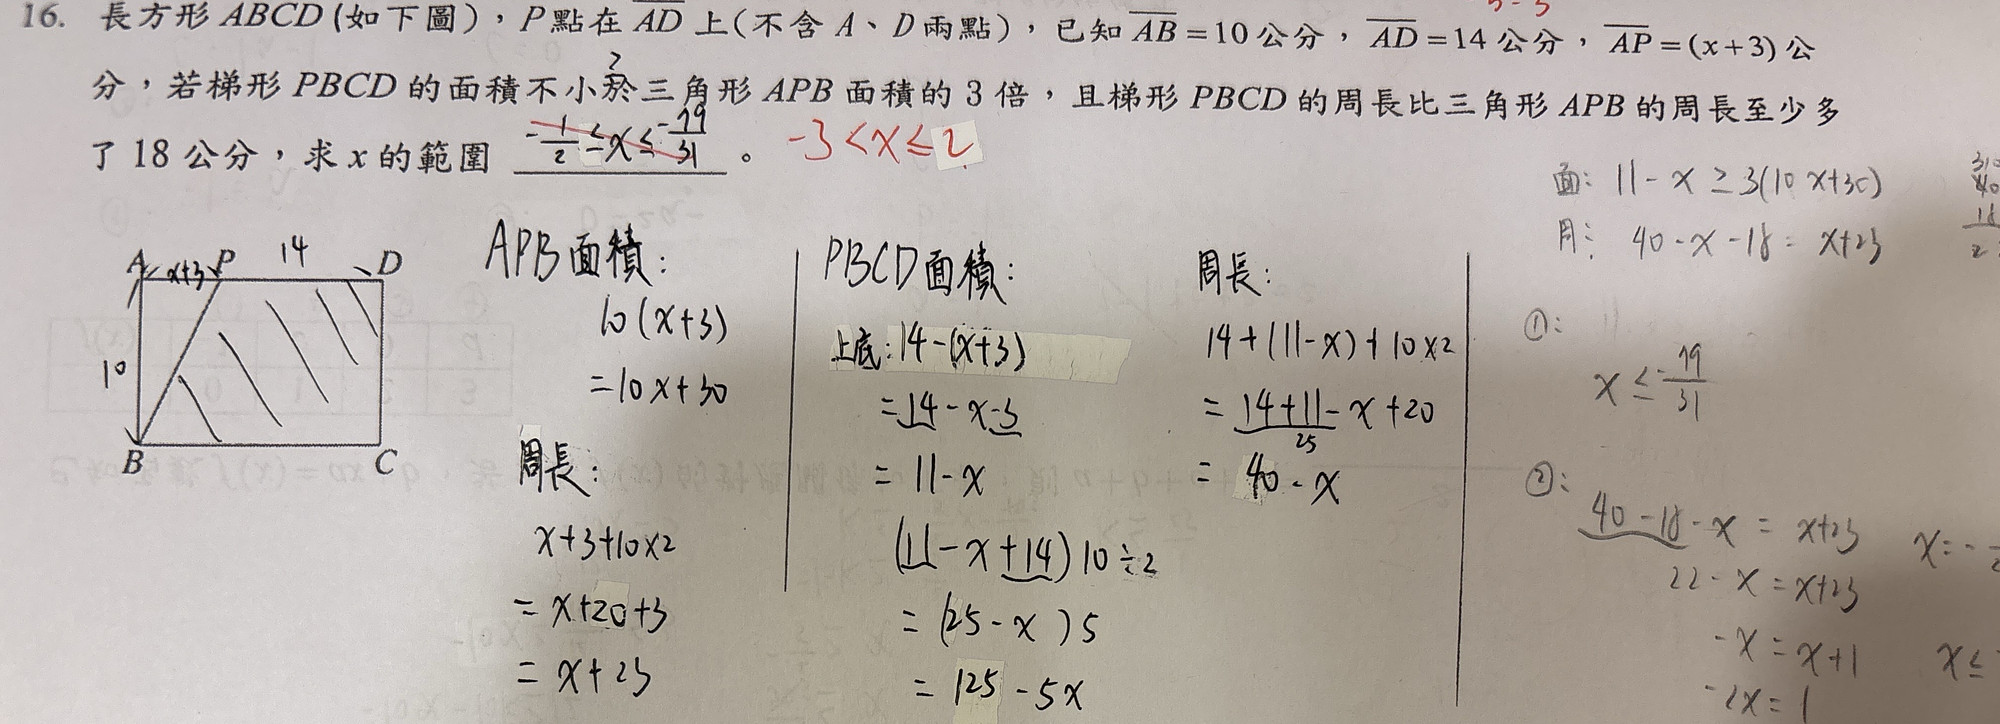 16. 長方形 ABCD (如下圖)，P點在 AD 上(不含 A、D 兩點)，已知 AB = 10 公分，AD = 14 公分，AP = (x+3) 公
分，若梯形 PBCD 的面積不小於三角形 APB 面積的 3 倍，且梯形 PBCD 的周長比三角形 APB 的周長至少多
了 18 公分，求 x 的範圍 -1/2 ≤ x ≤ -79/31 。 -3 < x ≤ 2
A x+3 P 14 D
10
B C
APB 面積：
10(x+3)
=10x+30
周長：
x+3+10×2
= x+20+3
= x+23
PBCD 面積：
上底：14-(x+3)
=14-x-3
= 11-x
(11-x+14)10÷2
= (25-x)5
= 125-5x
周長：
14+(11-x)+10×2
= 14+11-x+20
25
= 40-x
面： 11-x ≥ 3(10x+30)
周： 40-x-18 = x+23
①：
x ≤ -79/31
②：
40-18-x = x+23
22-x = x+23
-x = x+1
-2x = 1